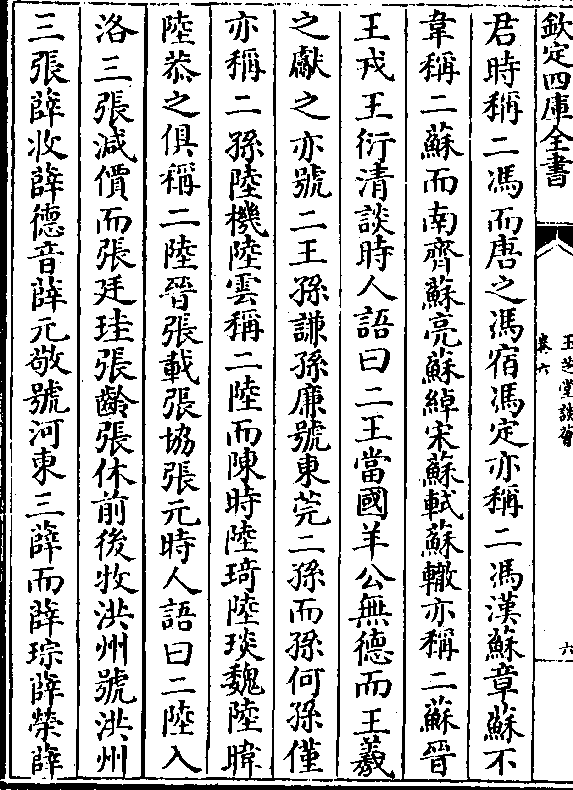 欽定四庫全書
玉芝堂談薈
卷六
六
君時稱二馮而唐之馮宿馮定亦稱二馮漢蘇章蘇不
韋稱二蘇而南齊蘇亮蘇綽宋蘇軾蘇轍亦稱二蘇晉
王戎王衍清談時人語曰二王當國羊公無德而王羲
之獻之亦號二王孫謙孫廉號東莞二孫而孫何孫僅
亦稱二孫陸機陸雲稱二陸而陳時陸琦陸琰魏陸暐
陸恭之俱稱二陸晉張載張協張元時人語曰二陸入
洛三張減價而張廷珪張齡張休前後牧洪州號洪州
三張薛收薛德音薛元敬號河東三薛而薛琮薛榮薛